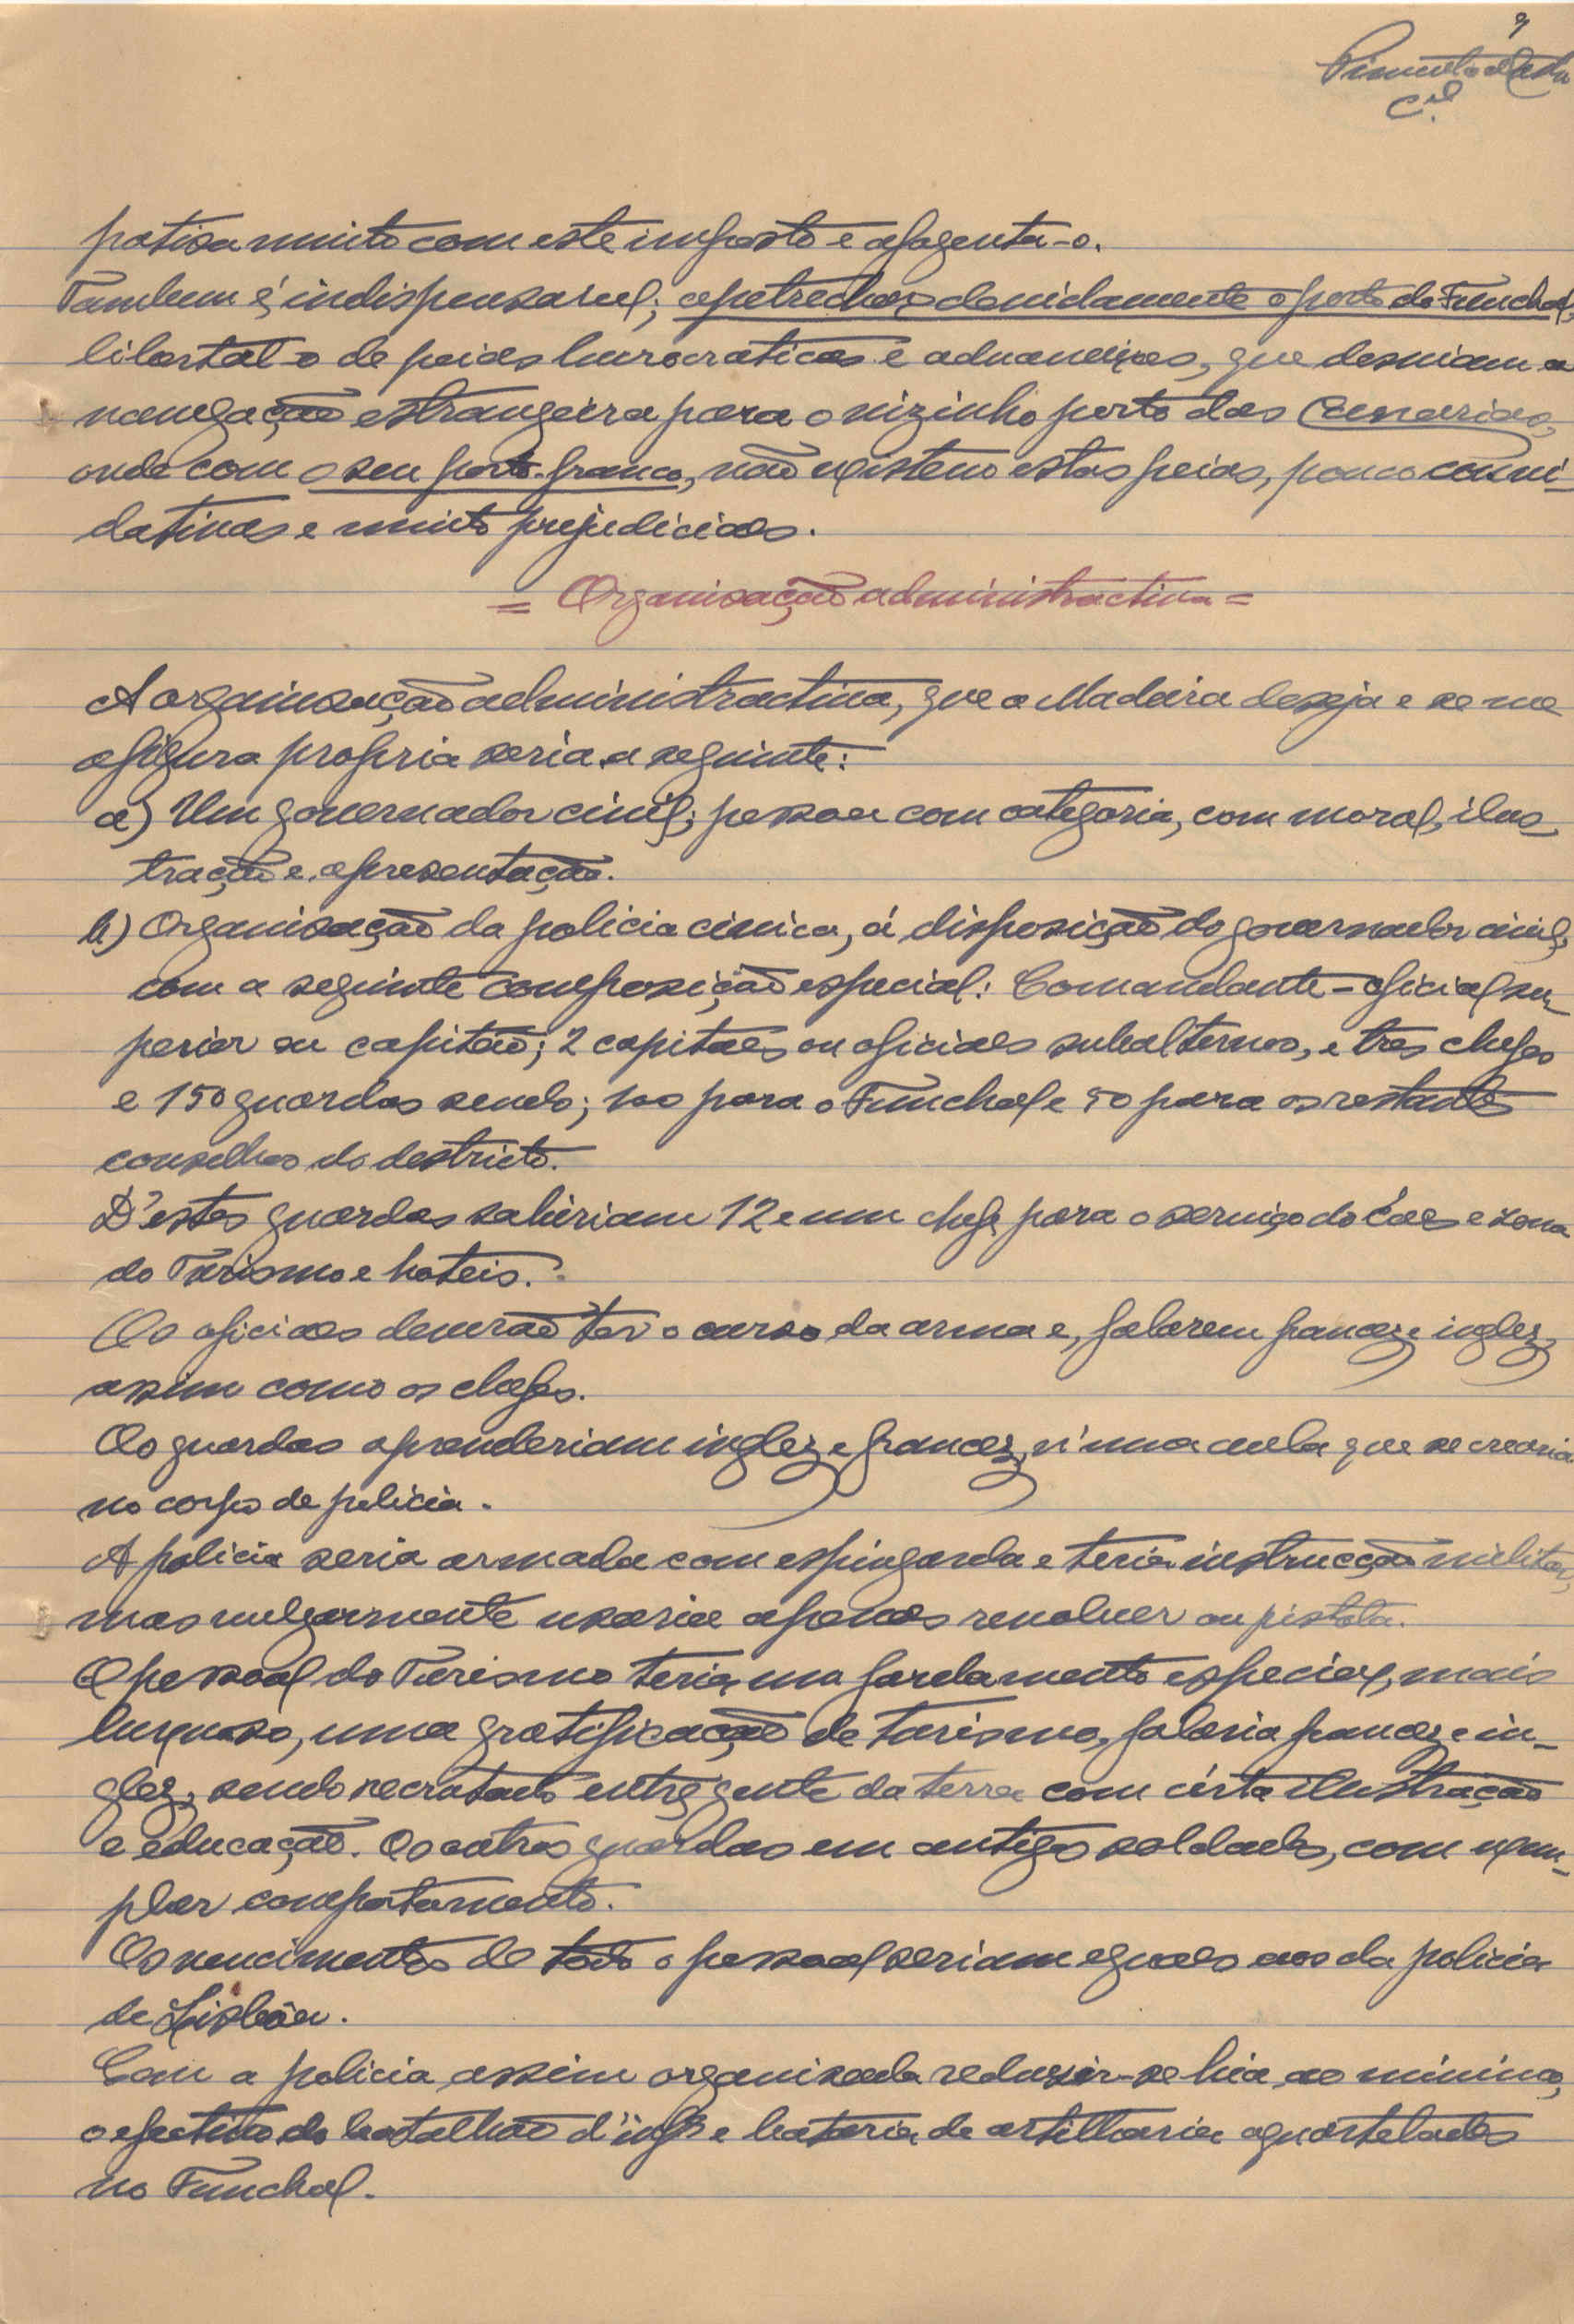 9
C.el
patisa muito com este imposto e afugenta-o.
Tambem é indispensavel; apetrechar devidamente o porto do Funchal,
libertal-o de peias burocraticas e aduaneiras, que desviam a
navegação estrangeira para o vizinho porto das Canarias,
onde com o seu porto-franco, não existem estas peias, pouco convi-
dativas e muito prejudiciaes.
= Organisação administractiva =
A organisação administractiva, que a Madeira deseja e se me
afigura propria seria a seguinte:
a) Um governador civil; pessoa com categoria, com moral, ilus-
tração e apresentação.
b) Organisação da policia civica, á disposição do governador civil,
com a seguinte composição especial: Comandante - oficial su-
perior ou capitão; 2 capitães ou oficiaes subalternos, e tres chefes
e 150 guardas sendo; 100 para o Funchal e 50 para os restantes
conselhos do destricto.
D'estes guardas sahiriam 12 e um chefe para o serviço do Cáes e zona
do Turismo e hoteis.
Os oficiaes deverão ter o curso da arma e, falarem francez e inglez,
assim como os chefes.
Os guardas aprenderiam inglez e francez, n'uma aula que se crearia
no corpo de policia.
A policia seria armada com espingarda e teria instrucção militar,
mas vulgarmente usaria apenas revolver ou pistola.
O pessoal do Turismo teria um fardamento especial, mais
luxuoso, uma gratificação de turismo, falaria francez e in-
glez, sendo recrutado entre gente da terra com cérta ilustração
e educação. Os outros guardas em antigos soldados, com exem-
plar comportamento.
Os vencimentos de todo o pessoal seriam eguaes aos da policia
de Lisbôa.
Com a policia assim organisada reduzir-se hia ao minimo,
o efectivo do batalhão d'inf.ª e bateria de artilharia aquartelados
no Funchal.